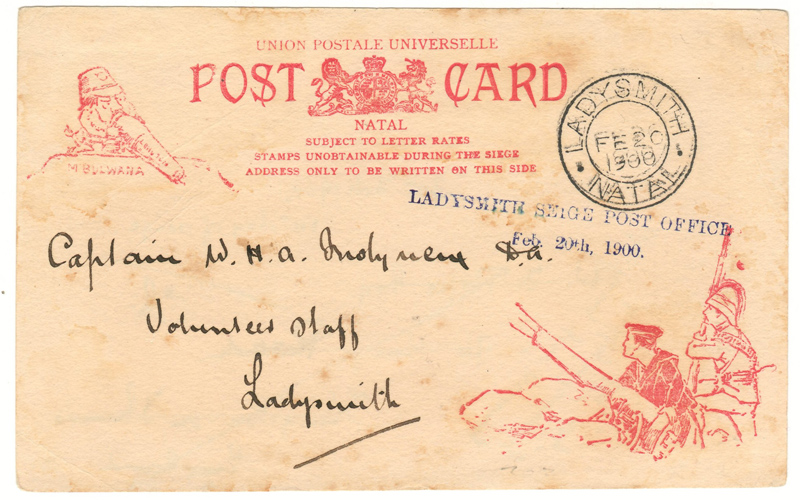 UNION POSTALE UNIVERSELLE
POST CARD
NATAL
SUBJECT TO LETTER RATES
STAMPS UNOBTAINABLE DURING THE SIEGE
ADDRESS ONLY TO BE WRITTEN ON THIS SIDE
M'BULWANA
LADYSMITH
FE 20
1900
NATAL
LADYSMITH SEIGE POST OFFICE
Feb. 20th, 1900.
Captain W. H. A. Molyneux
Volunteer Staff
Ladysmith